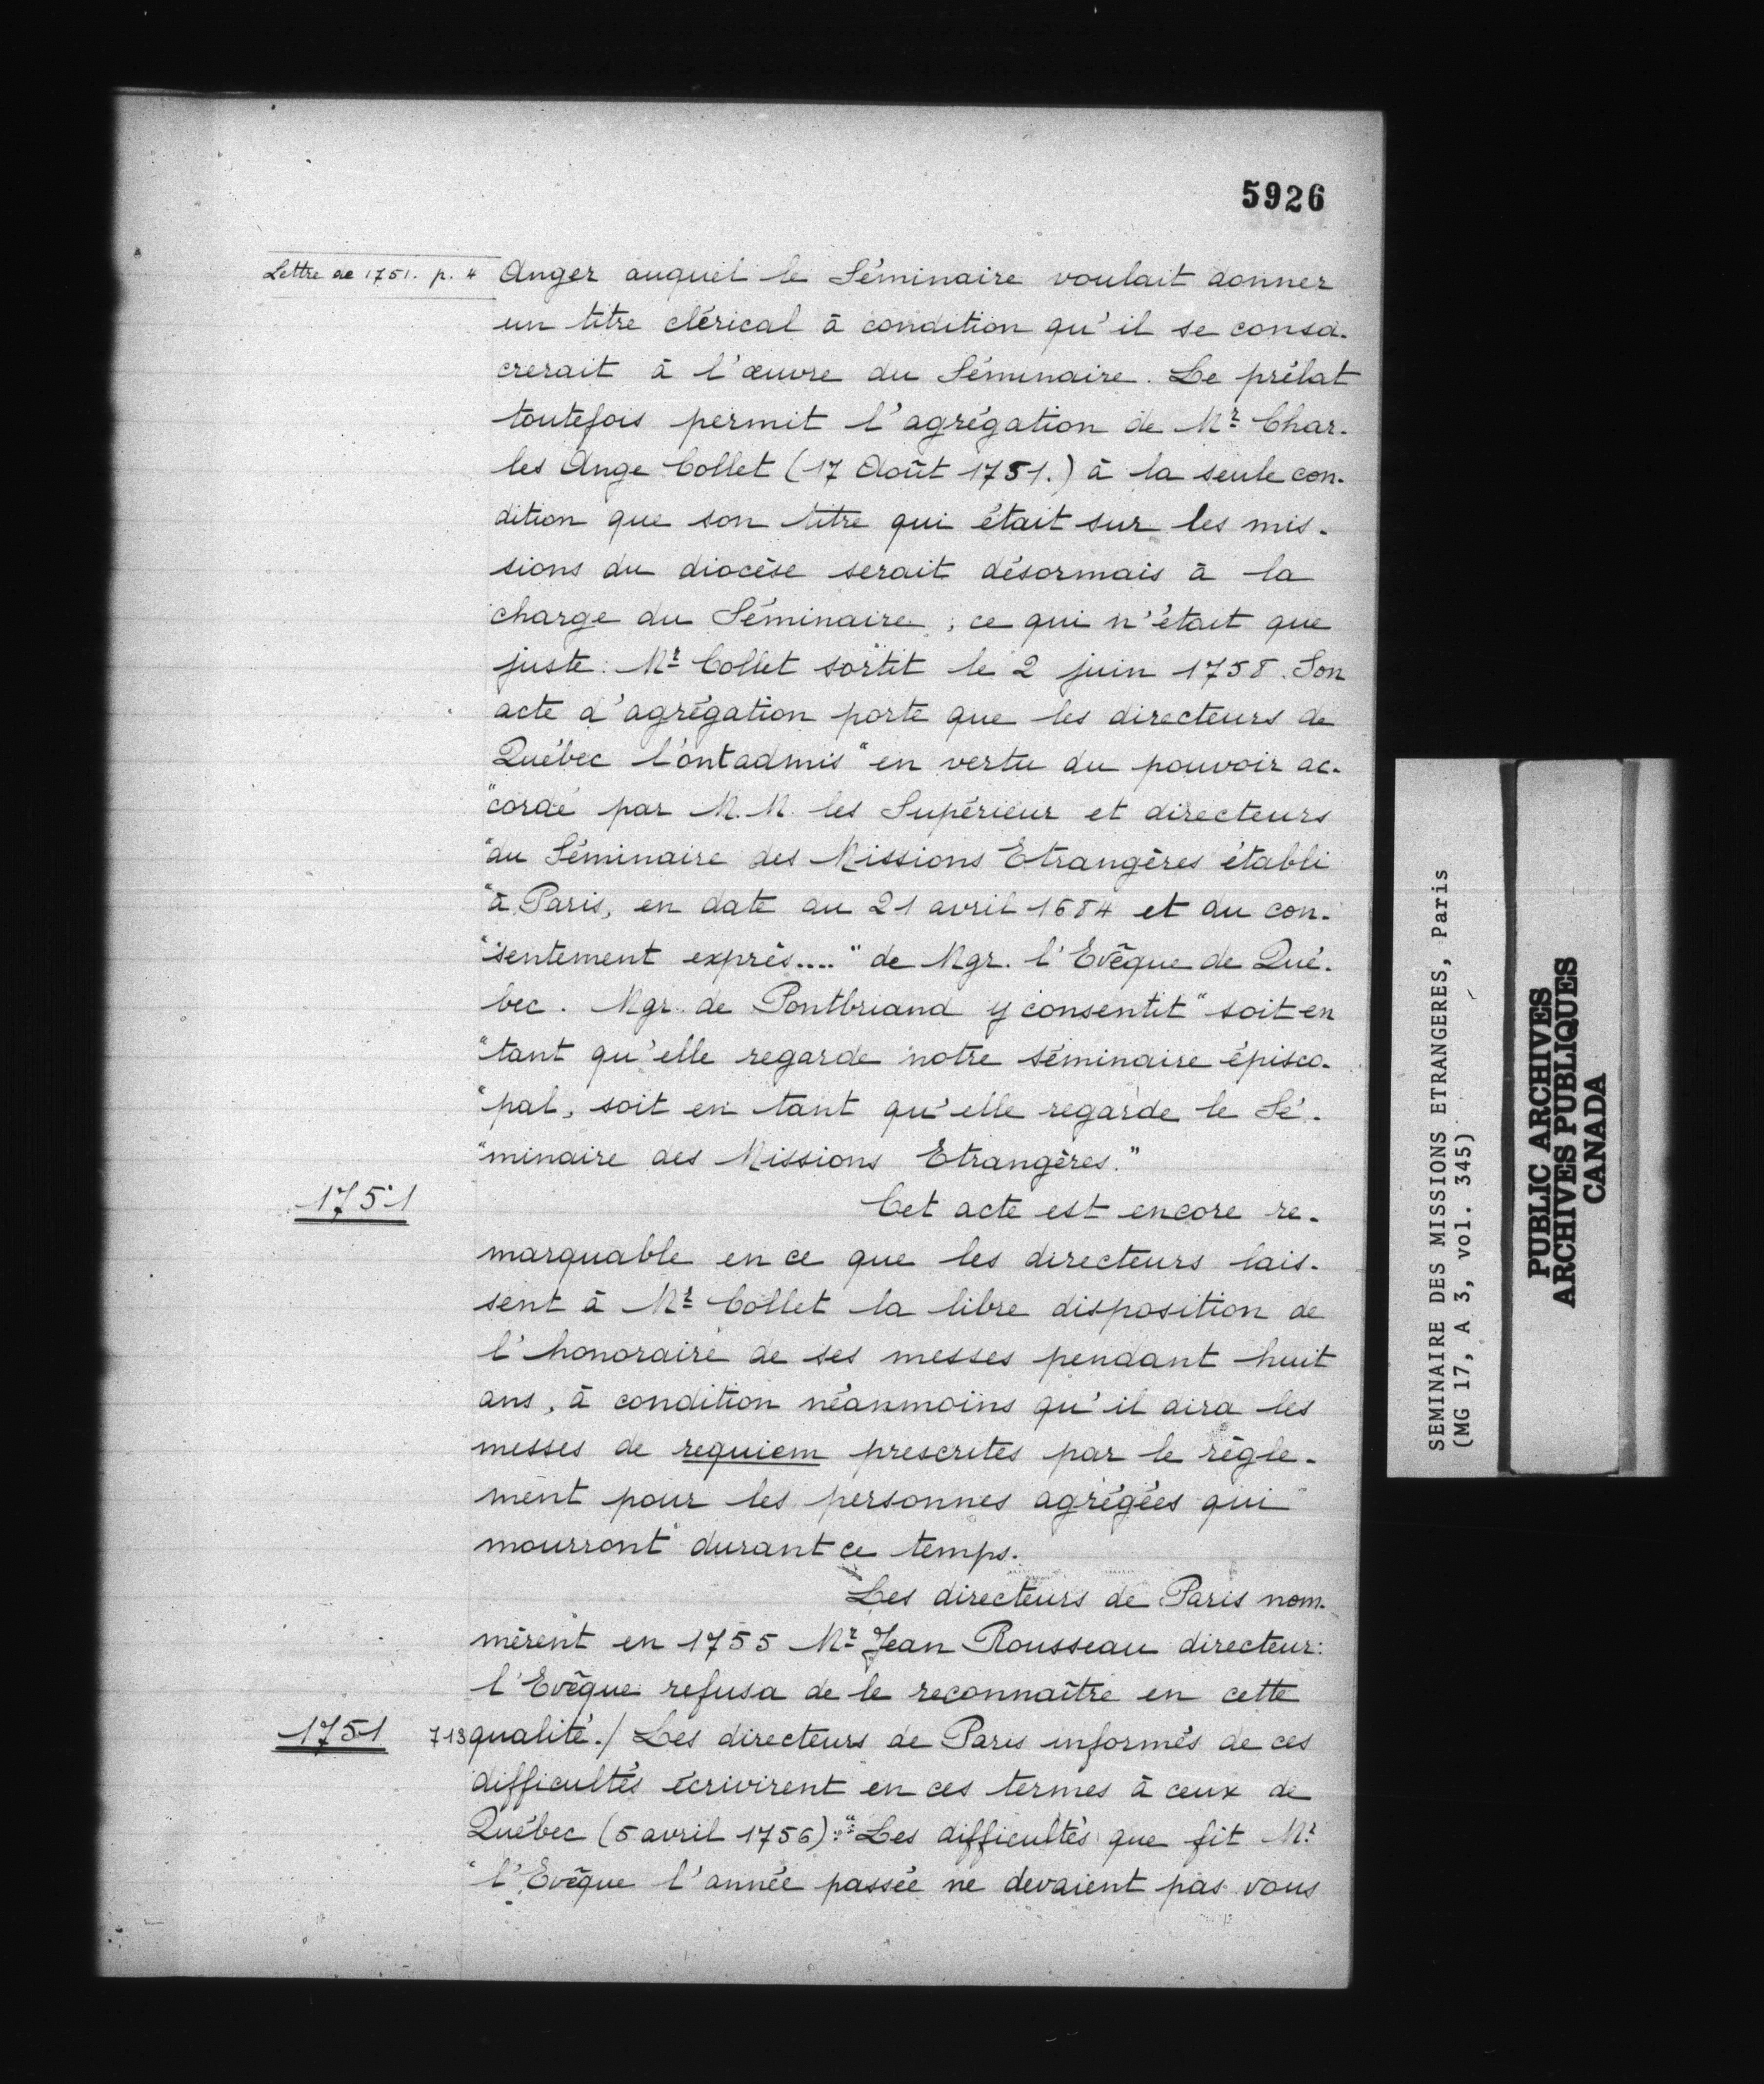 5926
Lettre de 1751. p. 4
Anger auquel le Séminaire voulait donner
un titre clérical à condition qu'il se consa-
crerait à l'œuvre du Séminaire. Le prélat
toutefois permit l'agrégation de Mr Char-
les Ange Collet (17 Août 1751.) à la seule con-
dition que son titre qui était sur les mis-
sions du diocèse serait désormais à la
charge du Séminaire, ce qui n'était que
juste. Mr Collet sortit le 2 juin 1758. Son
acte d'agrégation porte que les directeurs de
Québec l'ont admis "en vertu du pouvoir ac-
"cordé par M.M. les Supérieur et directeurs
"du Séminaire des Missions Etrangères établi
"à Paris, en date du 21 avril 1684 et du con-
"sentement exprès...." de Mgr. l'Evêque de Qué-
bec. Mgr. de Pontbriand y consentit "soit en
"tant qu'elle regarde notre séminaire épisco-
"pal, soit en tant qu'elle regarde le Sé-
"minaire des Missions Etrangères."
1751
Cet acte est encore re-
marquable en ce que les directeurs lais-
sent à Mr Collet la libre disposition de
l'honoraire de ses messes pendant huit
ans, à condition néanmoins qu'il dira les
messes de requiem prescrites par le règle-
ment pour les personnes agrégées qui
mourront durant ce temps.
Les directeurs de Paris nom-
mèrent en 1755 Mr Jean Rousseau directeur:
l'Evêque refusa de le reconnaître en cette
1751
713 qualité./ Les directeurs de Paris informés de ces
difficultés écrivirent en ces termes à ceux de
Québec (5 avril 1756): "Les difficultés que fit Mr
"l'Evêque l'année passée ne devaient pas vous
SEMINAIRE DES MISSIONS ETRANGERES, Paris
(MG 17, A 3, vol. 345)
PUBLIC ARCHIVES
ARCHIVES PUBLIQUES
CANADA